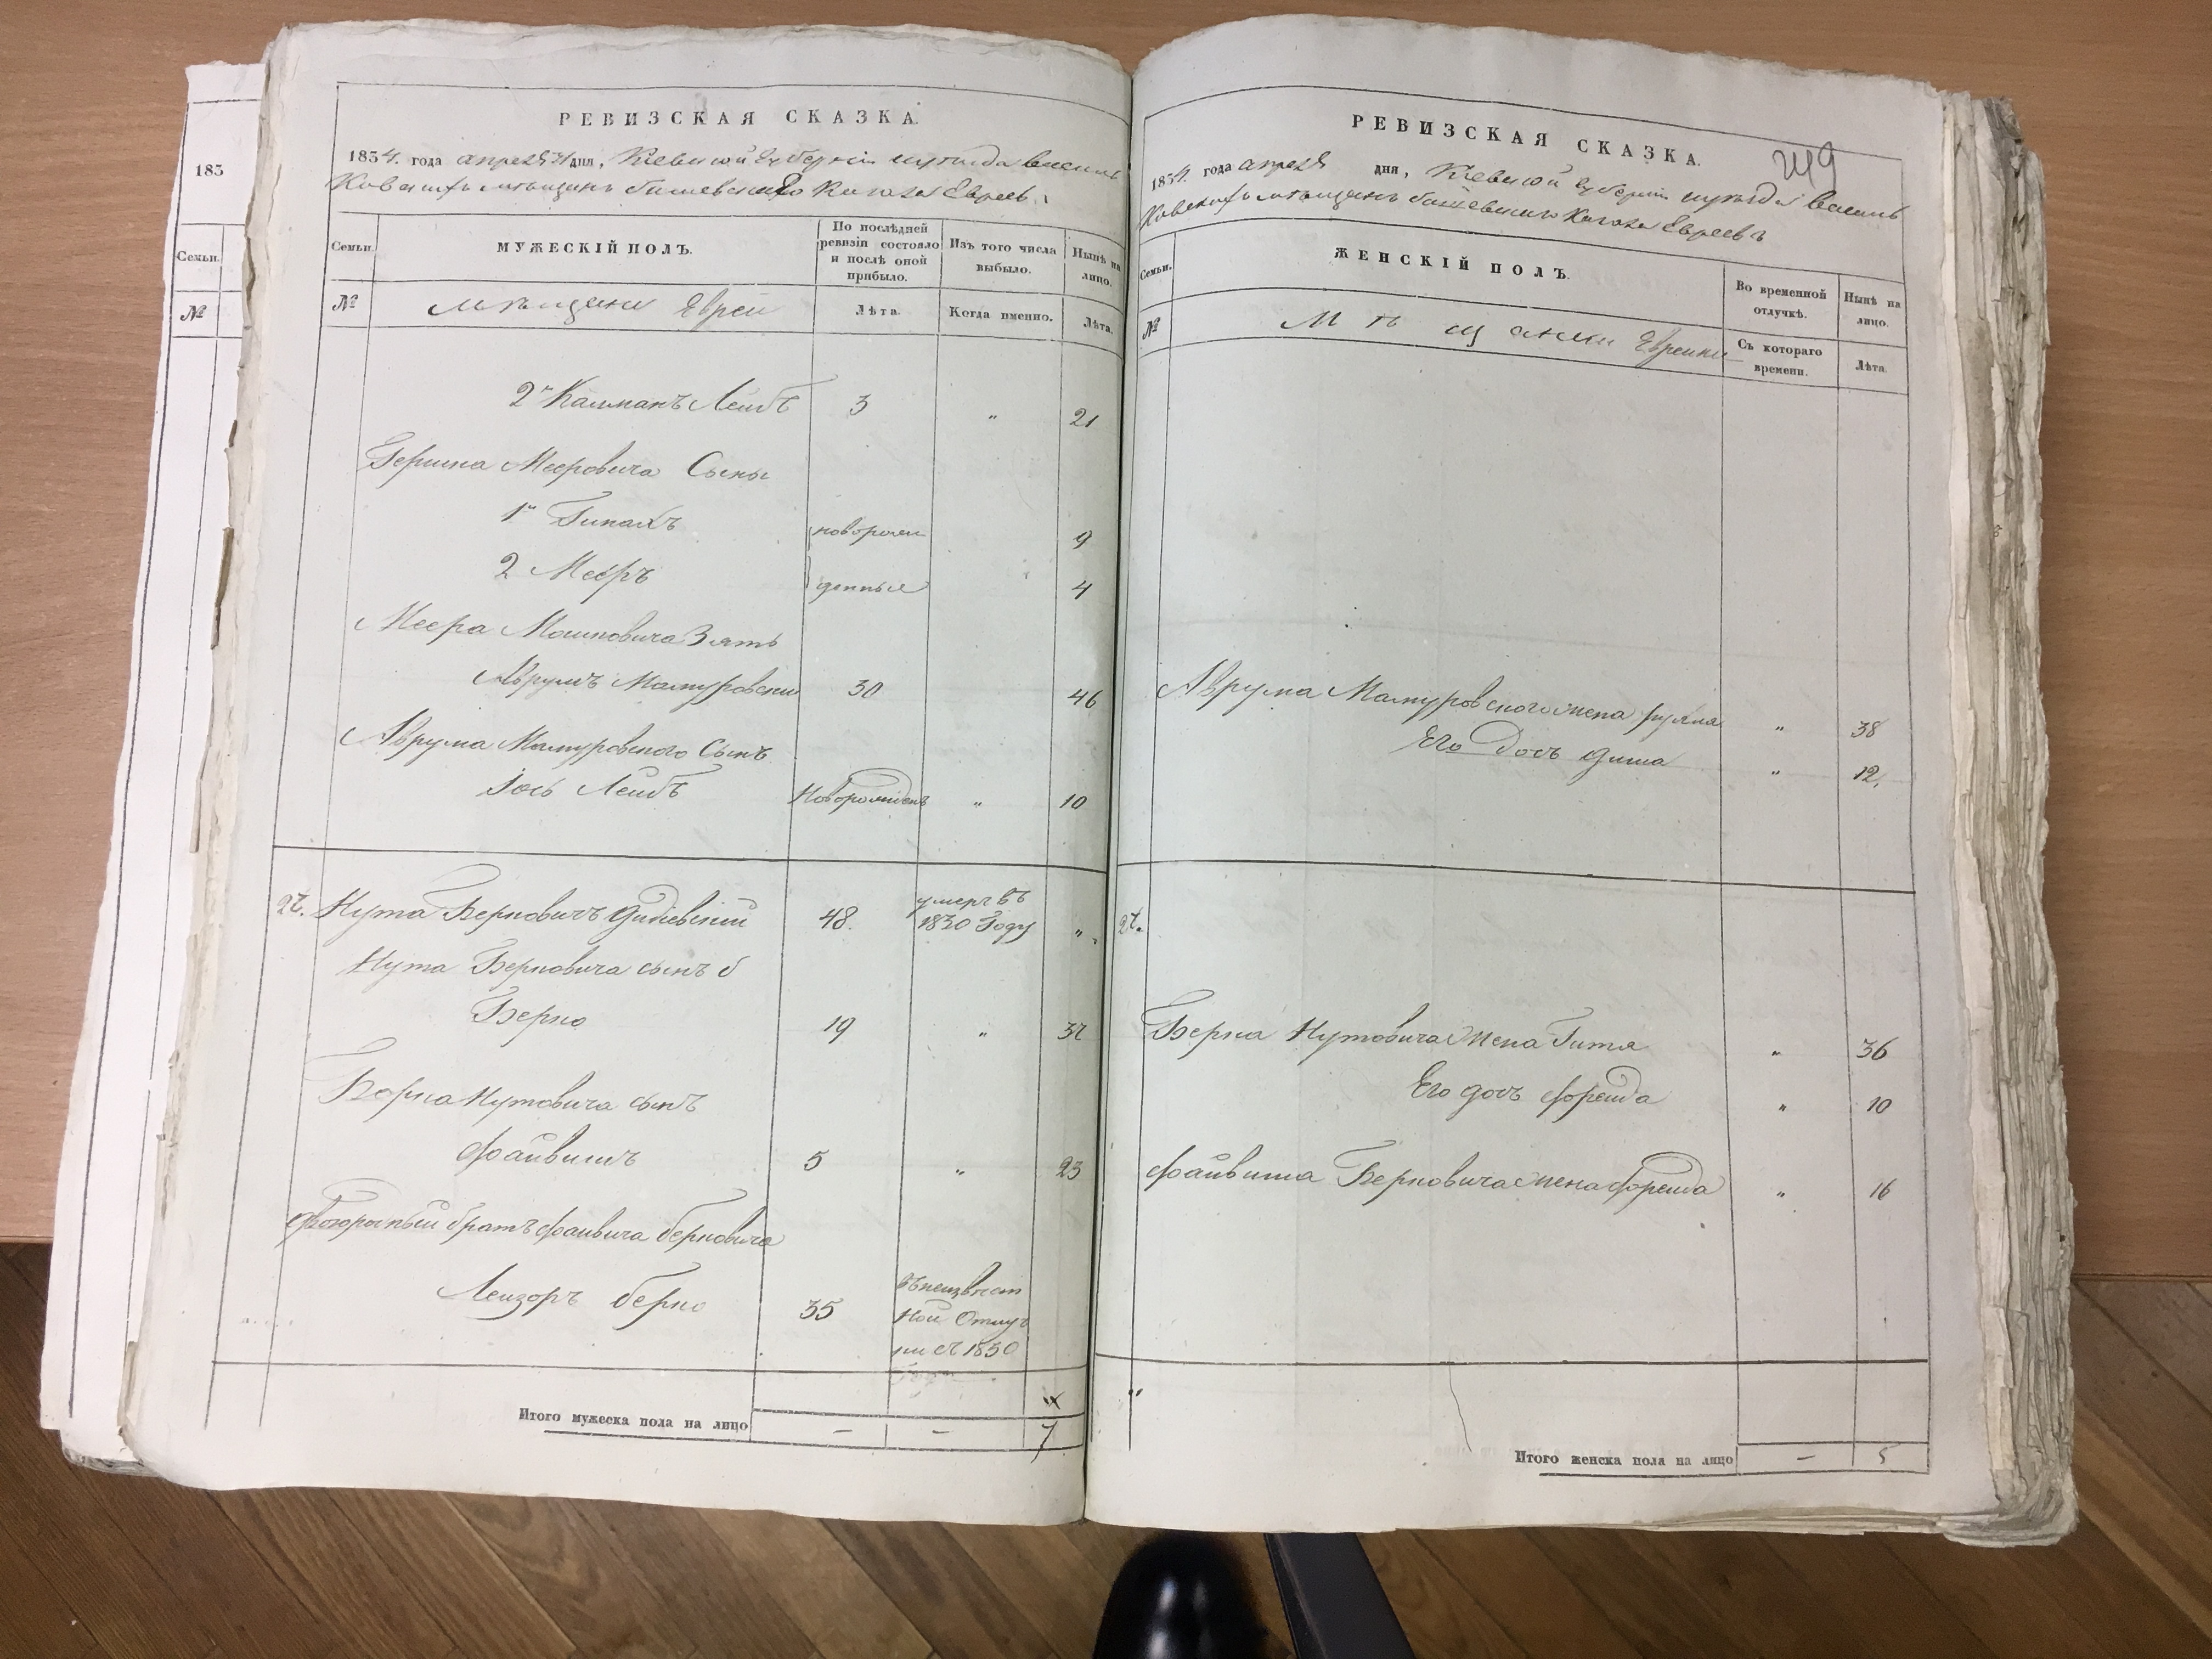 183
Семьи.
№
РЕВИЗСКАЯ СКАЗКА.
1854. года апреля дня, Киевской Губернiи уезда Василь
Ковскихъ мѣщанъ Кагала Евреевъ
Семьи.
МУЖЕСКIЙ ПОЛЪ.
По послѣдней ревизiи состояло и послѣ оной прибыло.
Изъ того числа выбыло.
Нынѣ на лицо.
№
мѣщане Евреи
Лѣта.
Когда именно.
Лѣта.
2й Калманъ Лейбъ 3 " 21
Гершка Мееровича Сыны
1й 9
новорож
2 Мееръ 4
денные
Меера Мошковича Зять
Аврумъ Мамуровски 30 46
Аврума Мамуровского Сынъ
Iось Лейбъ Новорожденъ " 10
Нута Берковичъ 48. умеръ въ 1830 Году "
Нута Берковича сынъ
Берко 19 "
Берка Нутовича сынъ
Файвишъ 5 " 23
двоюродный братъ Файвича берковича
Лейзоръ берко 35 въ неизвест
ной Отлуч
ки съ 1850
Итого мужеска пола на лицо
— — 7
РЕВИЗСКАЯ СКАЗКА.
1854. года апреля дня, Киевской Губернiи уезда Василь
Ковскихъ мѣщанъ Кагала Евреевъ
Семьи.
ЖЕНСКIЙ ПОЛЪ.
Во временной отлучкѣ.
Нынѣ на лицо.
№
Мѣщанки Еврейки
Съ котораго времени.
Лѣта.
Аврума Мамуровского жена " 38
Его дочь " 12.
Берка Нутовича жена Гитя " 36
Его дочь Фрейда " 10
Файвиша Берковича жена Фрейда " 16
Итого женска пола на лицо
— 5